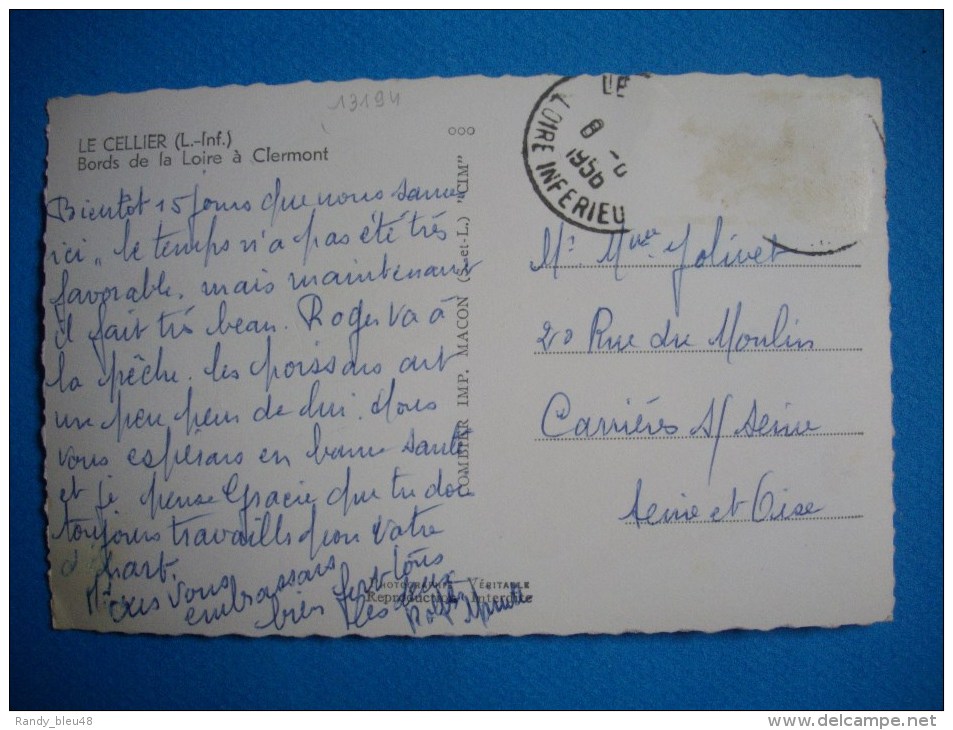 13194
LE CELLIER (L.-Inf.)
Bords de la Loire à Clermont
Bientôt 15 jours que nous sommes
ici, le temps n'a pas été très
favorable, mais maintenant
il fait très beau. Roger va à
la pêche. les poissons ont
un peu peur de lui. Nous
vous espérons en bonne santé
et je pense Gracie que tu dois
toujours travailler pour votre
départ.
Nous vous
embrassons
bien fort tous
les deux
COMBIER IMP. MACON (S.-et-L.) "CIM"
PHOTOGRAPHIE VÉRITABLE
Reproduction Interdite
LE
LOIRE INFERIEU
8
1956
Mr. Mme Jolivet
20 Rue du Moulin
Carrières s/ Seine
Seine et Oise
Randy_bleu48
http://www.delcampe.net